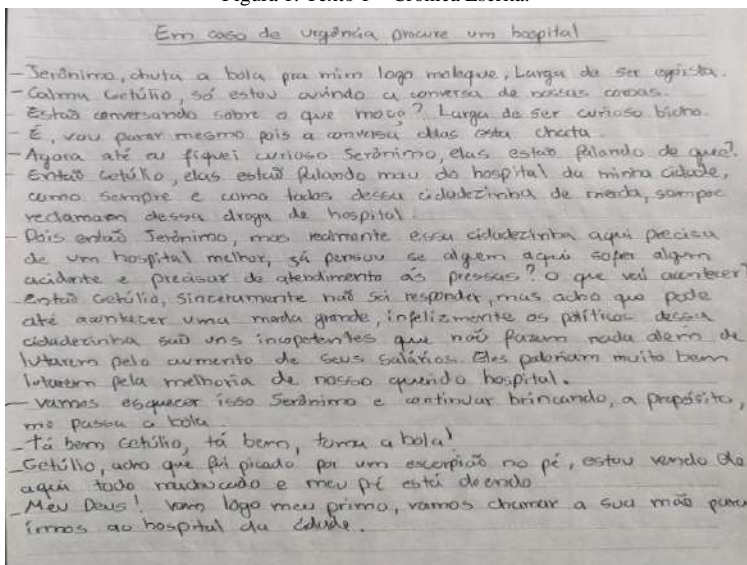 Figura 1: Texto 1 – Crônica Escrita.
Em caso de urgência procure um hospital
– Jerônimo, chuta a bola pra mim logo moleque, Larga de ser egoísta.
– Calma Getúlio, só estou ouvindo a conversa de nossas coroas.
– Estão conversando sobre o que moço? Larga de ser curioso bicho.
– É, vou parar mesmo pois a conversa delas esta chata.
– Agora até eu fiquei curioso Jerônimo, elas estão falando de que?
– Então Getúlio, elas estão falando mau do hospital da minha cidade,
como sempre e como todos dessa cidadezinha de merda, sempre
reclamam dessa droga de hospital.
– Pois então Jerônimo, mas realmente essa cidadezinha aqui precisa
de um hospital melhor, já pensou se algem aqui sofer algem
acidente e precisar de atendimento ás pressas? O que vai acontecer?
– Então Getúlio, sinceramente não sei responder, mas acho que pode
até acontecer uma merda grande, infelizmente os políticos dessa
cidadezinha são uns incopetentes que não fazem nada alem de
lutarem pelo aumento de seus salários. Eles poderiam muito bem
lutarem pela melhoria de nosso querido hospital.
– Vamos esquecer isso Jerônimo e continuar brincando, a propósito,
me passa a bola.
– Tá bem Getúlio, tá bem, toma a bola!
– Getúlio, acho que fui picado por um escorpião no pé, estou vendo ele
aqui todo machucado e meu pé está doendo
– Meu Deus! Vam logo meu primo, vamos chamar a sua mão para
irmos ao hospital da cidade.